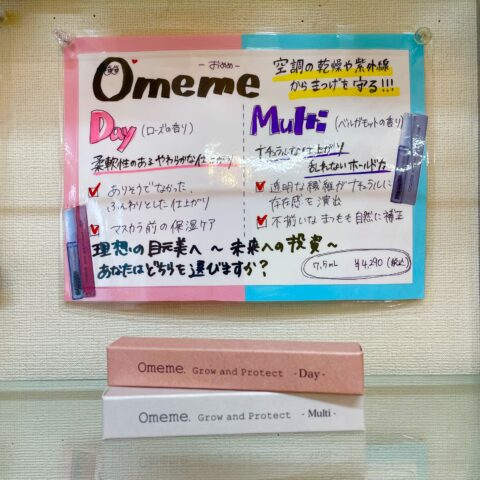 Omeme
- おめめ -
空調の乾燥や紫外線
からまつげを守る!!!
Day (ローズの香り)
柔軟性のあるやわらかな仕上がり
ありそうでなかった、
ふんわりとした仕上がり
マスカラ前の保湿ケア
Multi (ベルガモットの香り)
ナチュラルな仕上がり
乱れないホールド力
透明な繊維がナチュラルに
存在感を演出
不揃いなまつもも自然に補正
理想の目元美へ ~ 未来への投資 ~
あなたはどちらを選びますか?
7.5mL ¥4,290 (税込)
Omeme. Grow and Protect - Day -
Omeme. Grow and Protect - Multi -